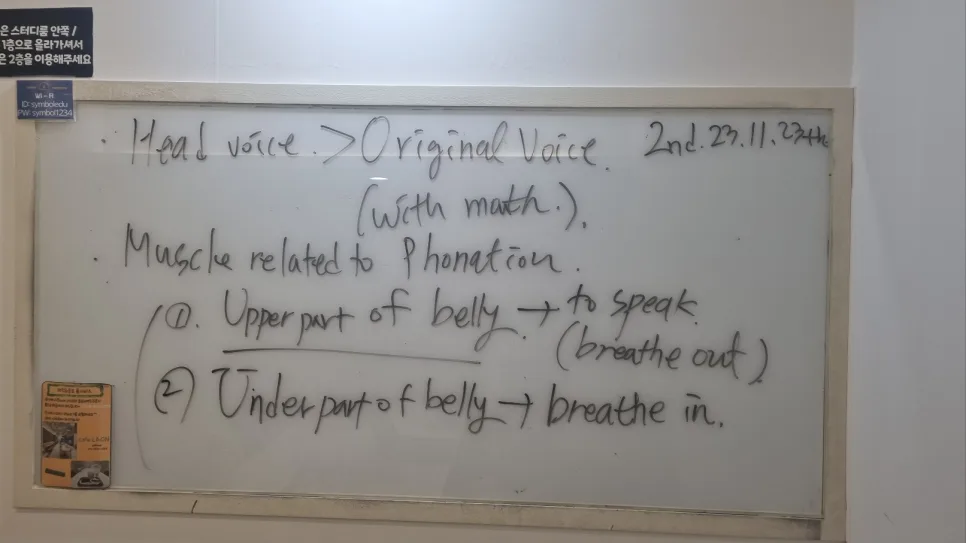 은 스터디룸 안쪽 /
1층으로 올라가셔서
은 2층을 이용해주세요
Wi-Fi
ID: symboledu
PW: symbol1234
· Head voice. > Original Voice. 2nd. 23. 11. 23th
(with math.).
· Muscle related to Phonation.
①. Upper part of belly. → to speak.
(breathe out).
② Under part of belly → breathe in.